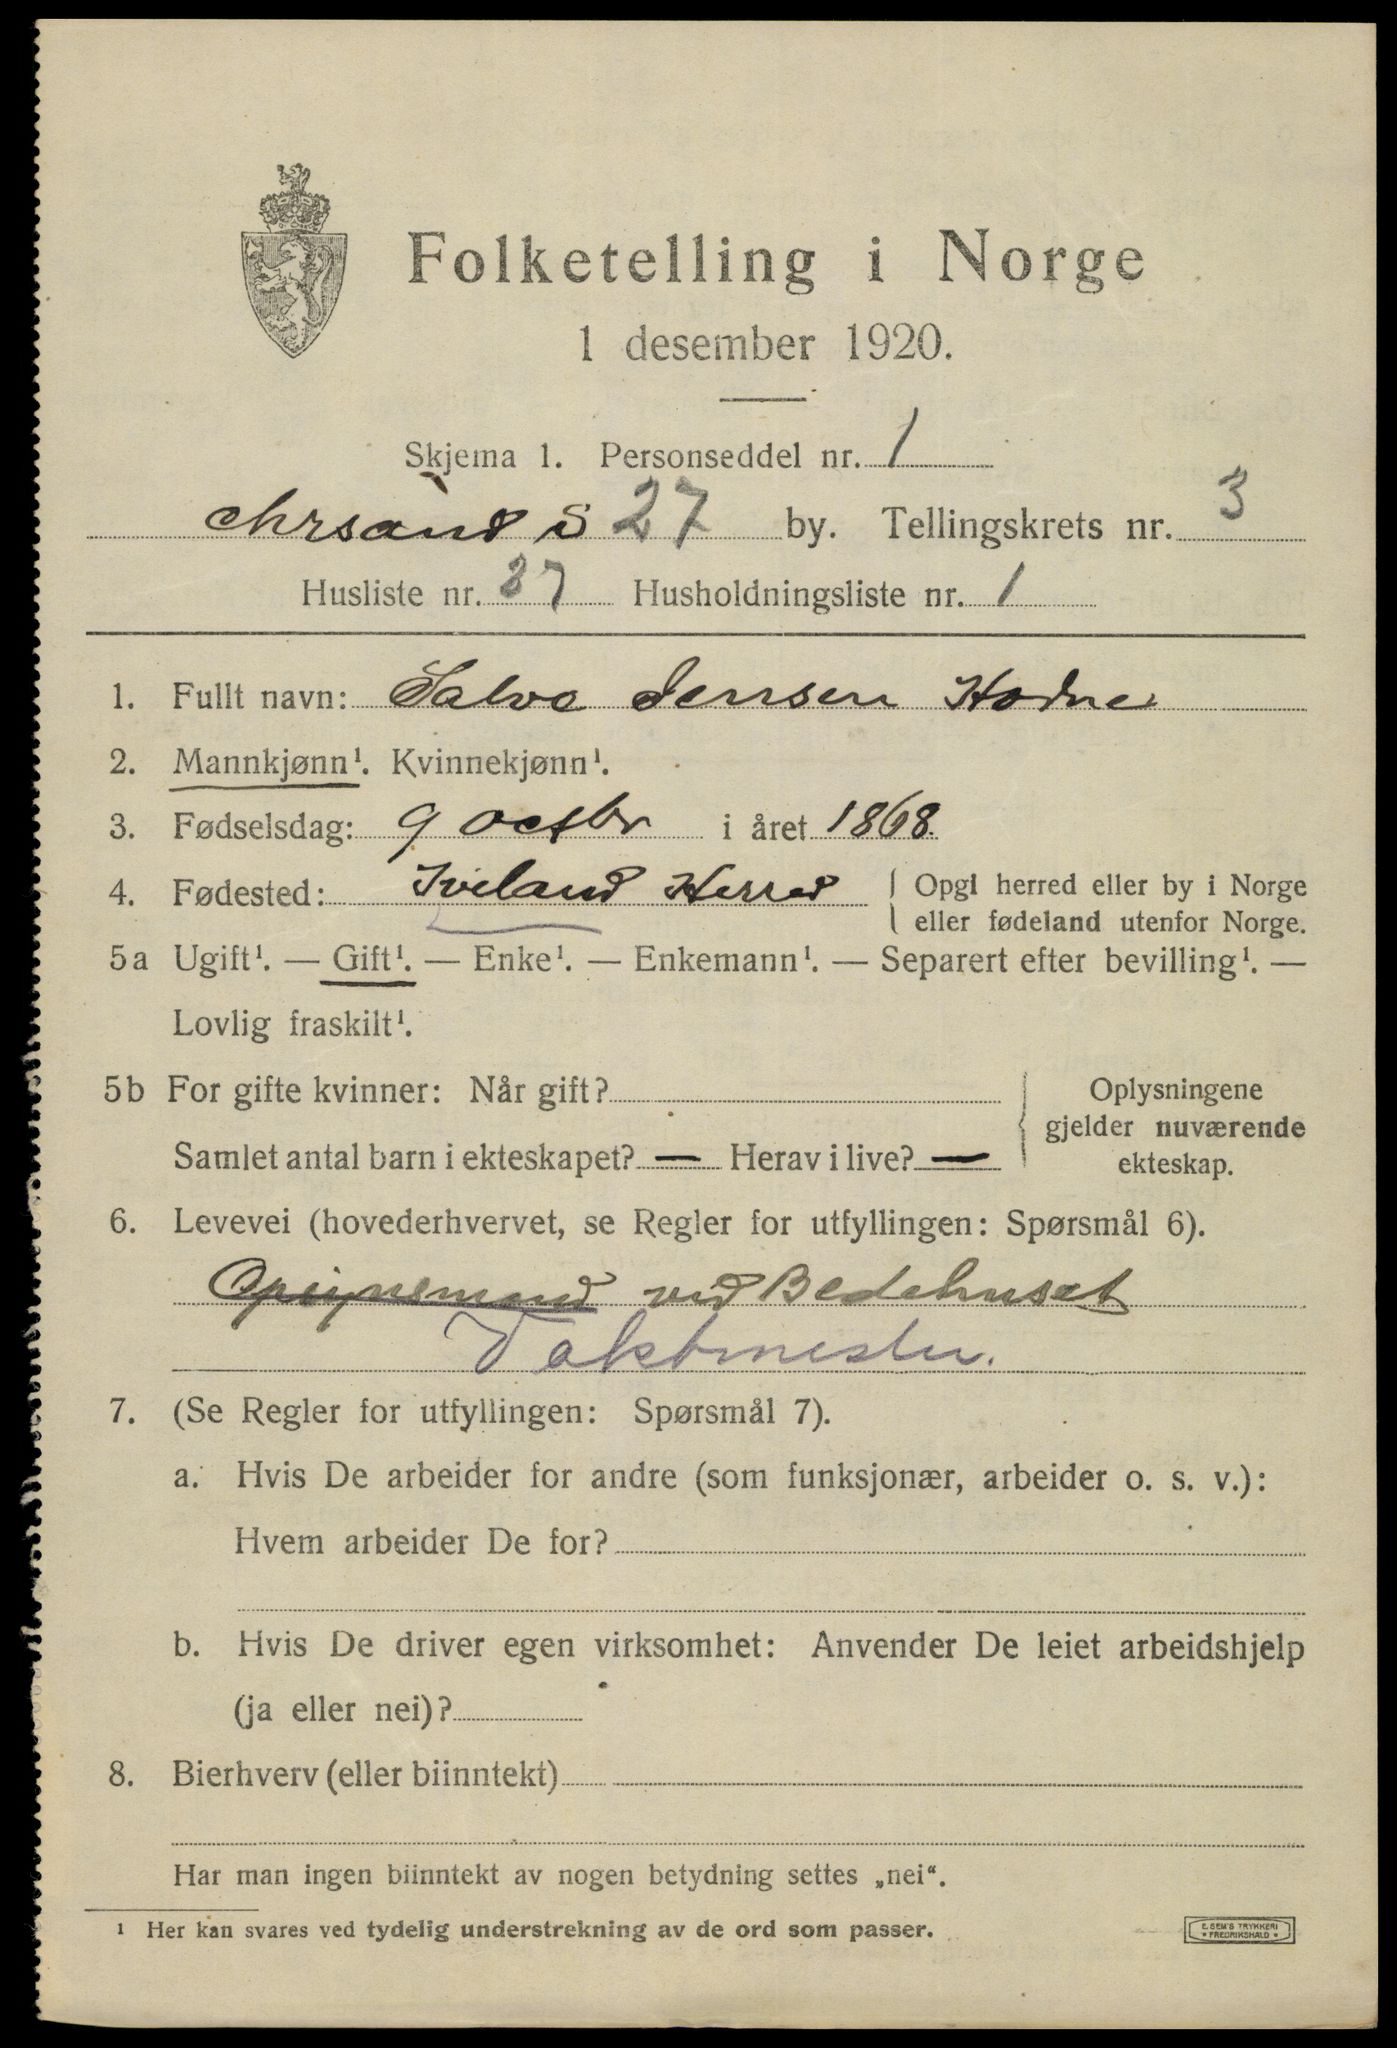 Folketelling i Norge
1 desember 1920.
Skjema 1. Personseddel nr. 1
Chrsand S 27 by. Tellingskrets nr. 3
Husliste nr. 37 Husholdningsliste nr. 1
1. Fullt navn: Salve Jensen Hodne
2. Mannkjønn¹. Kvinnekjønn¹.
3. Fødselsdag: 9 octbr i året 1868.
4. Fødested: Iveland Herred { Opgi herred eller by i Norge
eller fødeland utenfor Norge.
5a Ugift¹. — Gift¹. — Enke¹. — Enkemann¹. — Separert efter bevilling¹. —
Lovlig fraskilt¹.
5b For gifte kvinner: Når gift? { Oplysningene
gjelder nuværende
Samlet antal barn i ekteskapet? — Herav i live? — ekteskap.
6. Levevei (hovederhvervet, se Regler for utfyllingen: Spørsmål 6).
Opsynsmand ved Bedehuset
Vaktmester.
7. (Se Regler for utfyllingen: Spørsmål 7).
a. Hvis De arbeider for andre (som funksjonær, arbeider o. s. v.):
Hvem arbeider De for?
b. Hvis De driver egen virksomhet: Anvender De leiet arbeidshjelp
(ja eller nei)?
8. Bierhverv (eller biinntekt)
Har man ingen biinntekt av nogen betydning settes „nei“.
¹ Her kan svares ved tydelig understrekning av de ord som passer.
E. SEM'S TRYKKERI
• FREDRIKSHALD •